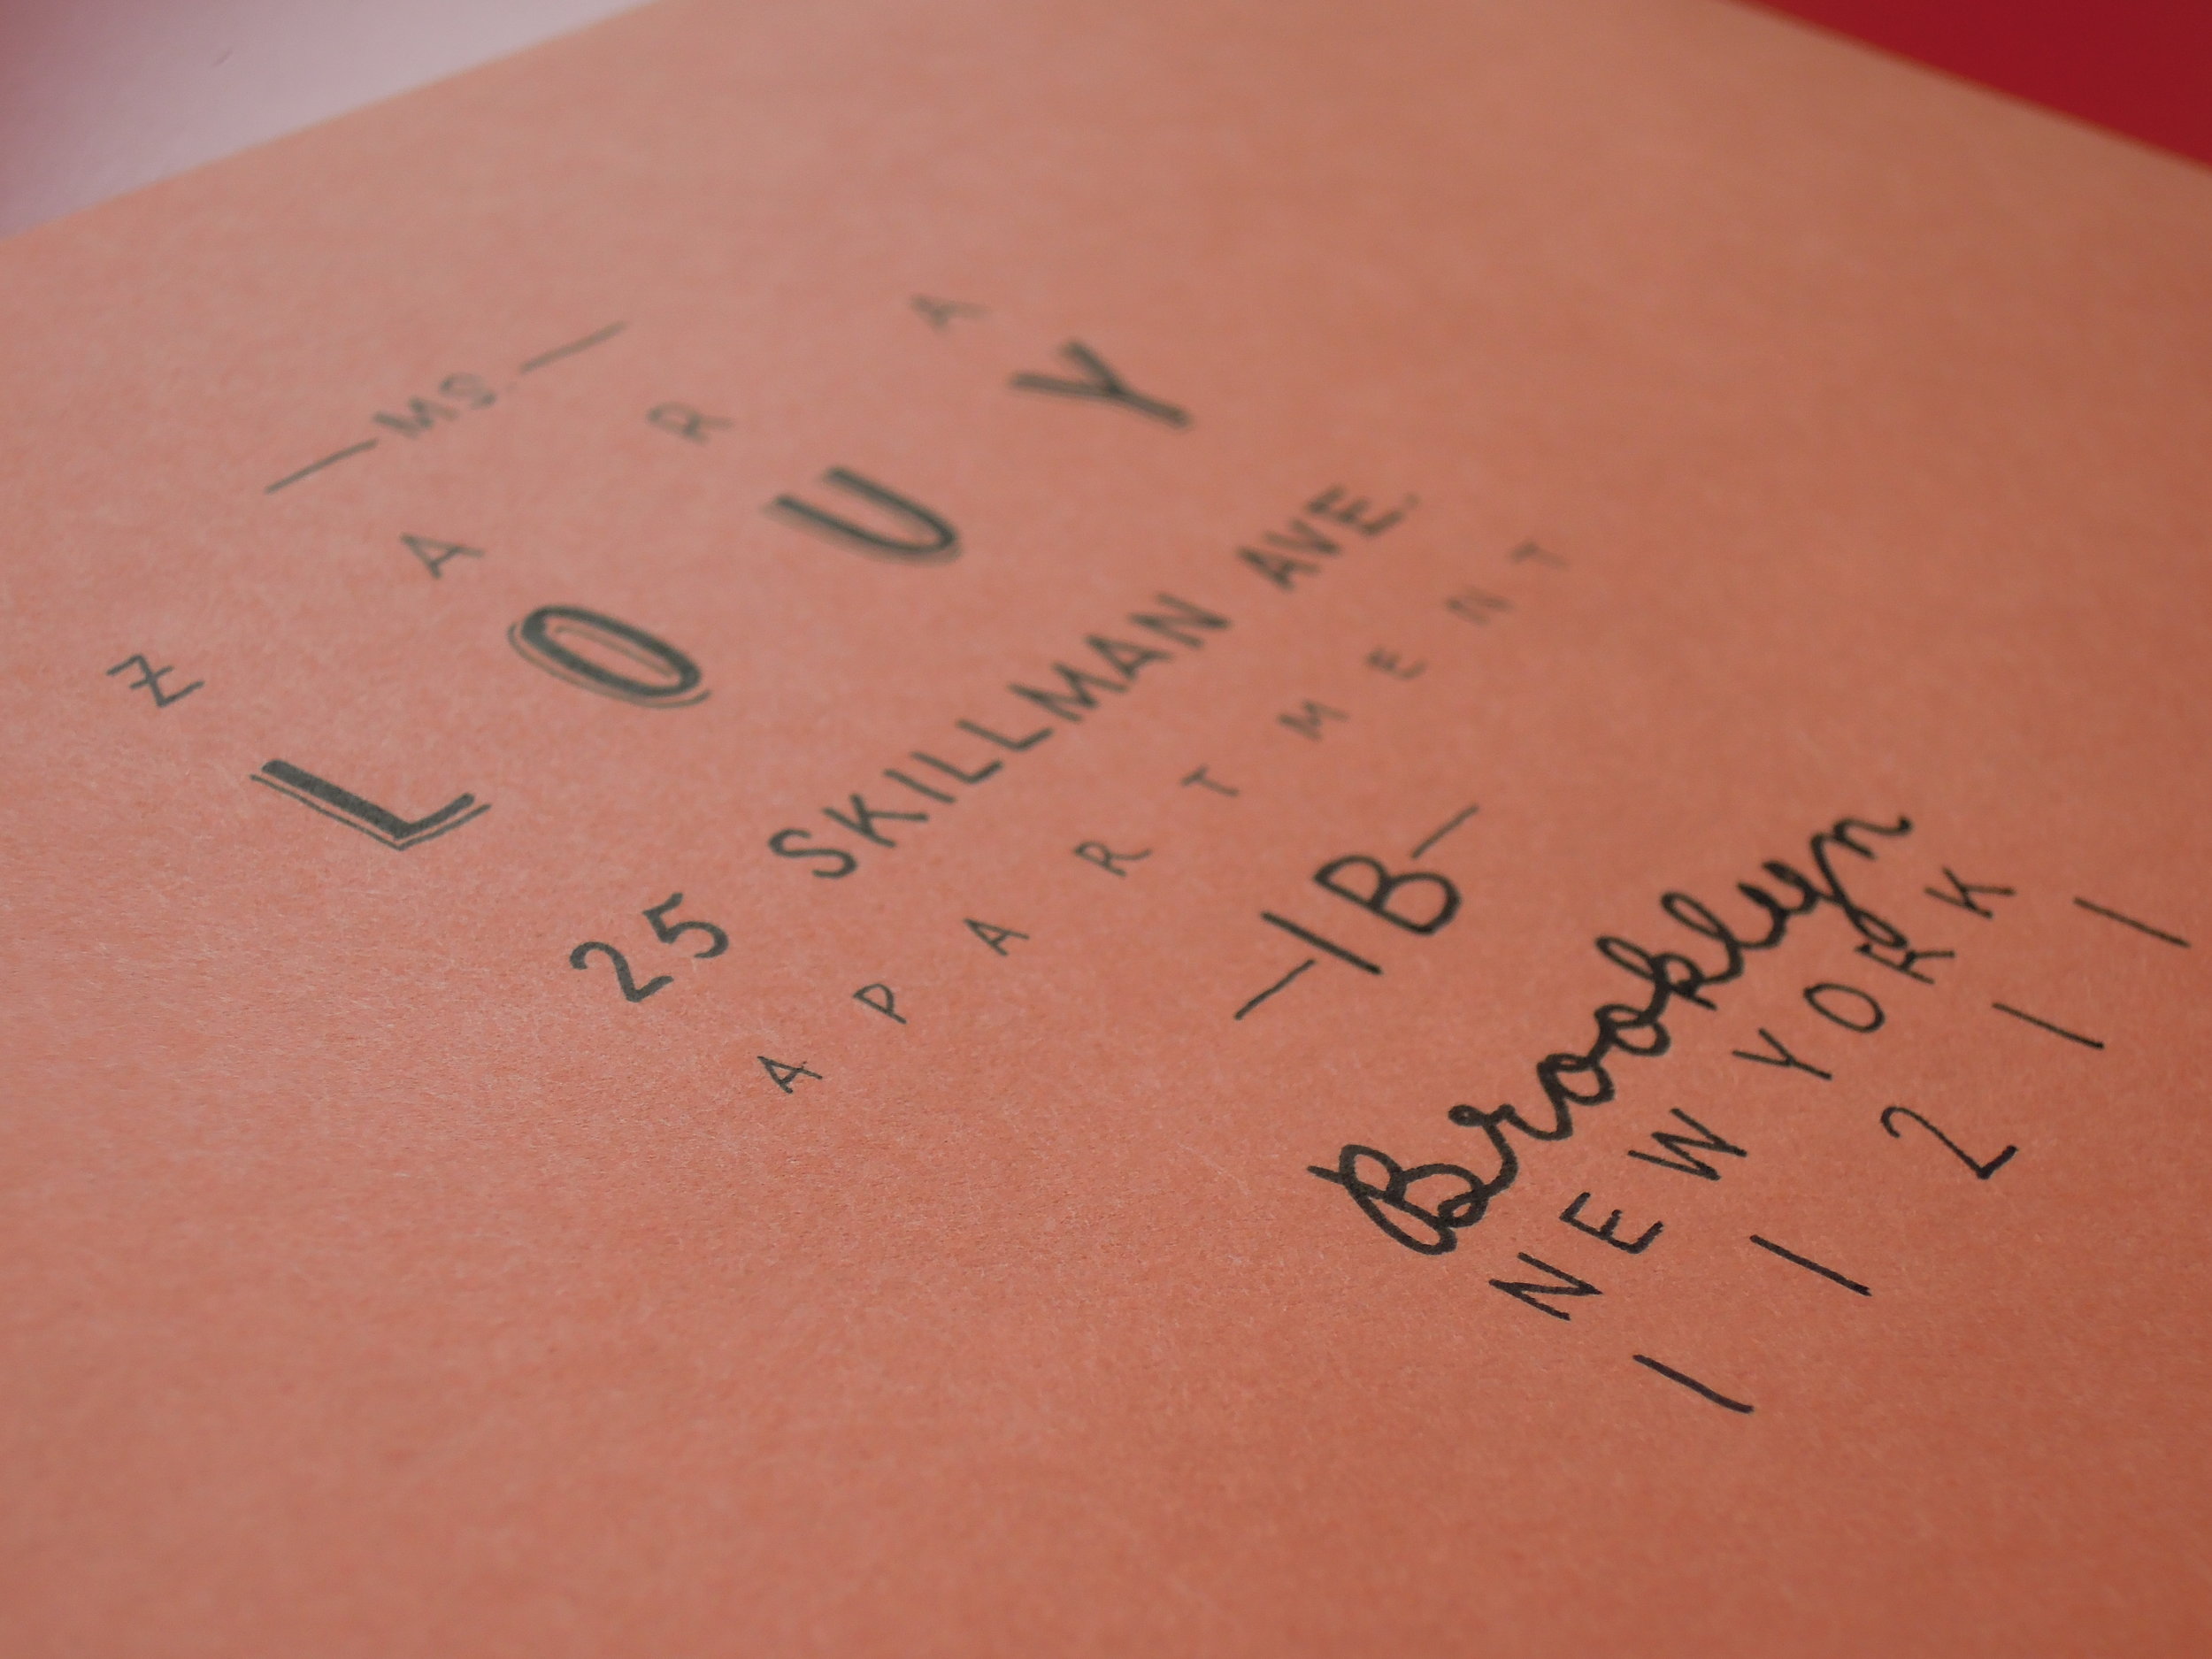 —Ms.—
ZARA
LOUY
25 SKILLMAN AVE.
APARTMENT
—1B—
Brooklyn
NEW YORK
11211